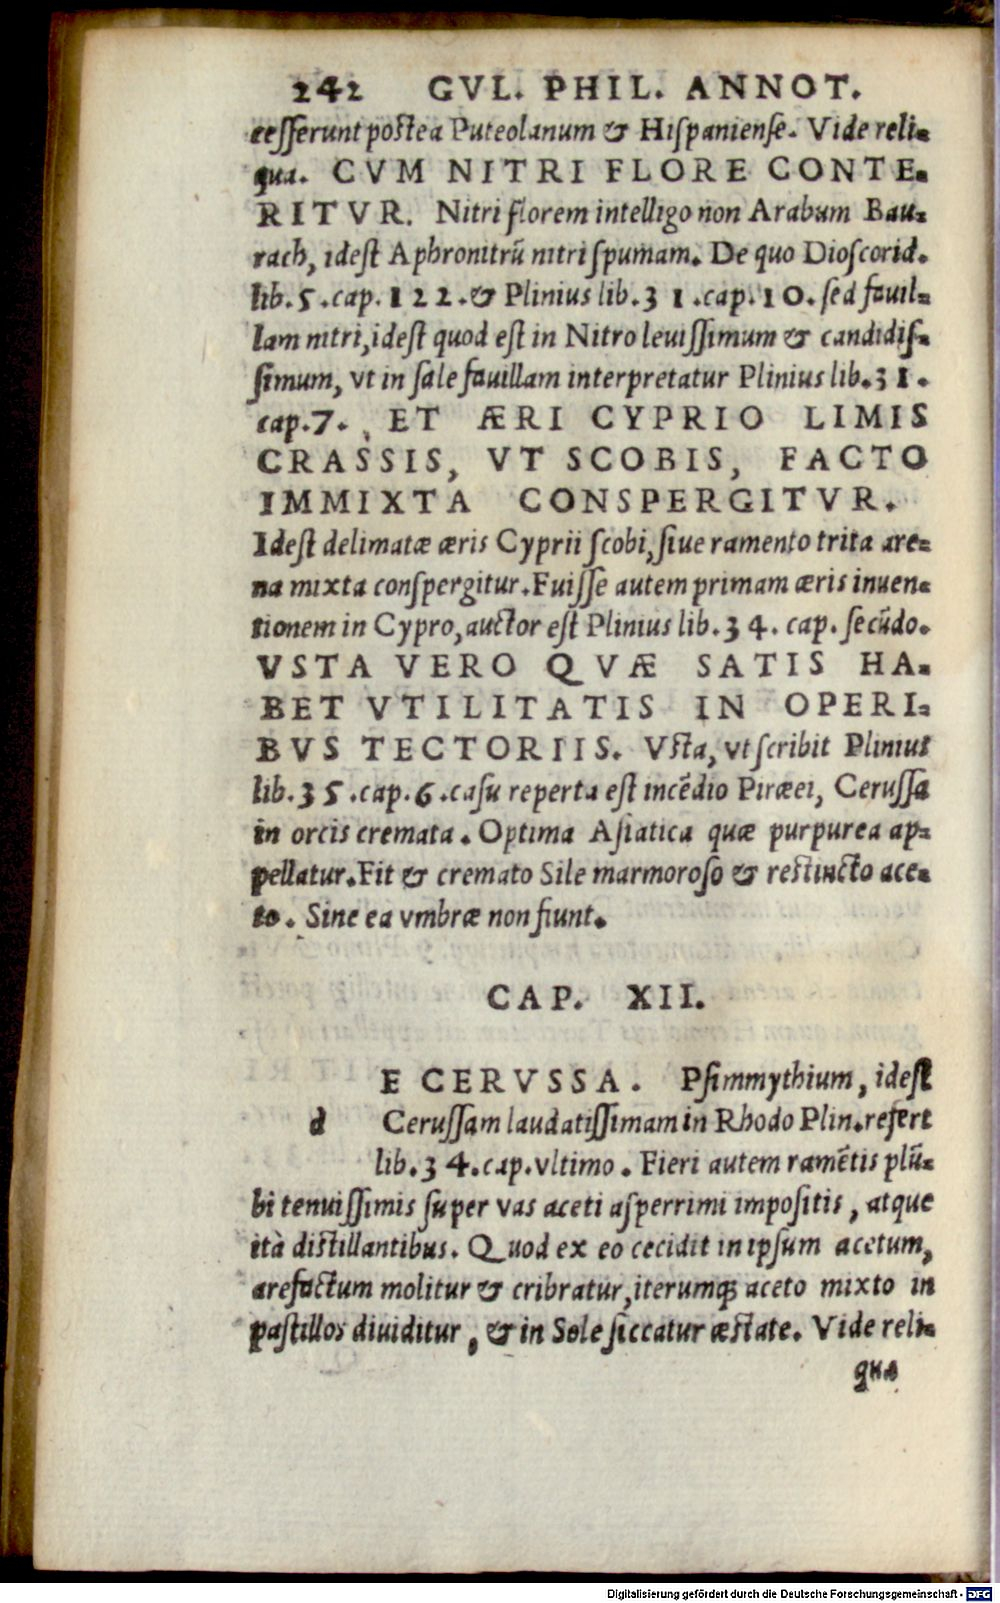 242 GVL. PHIL. ANNOT.
cesserunt postea Puteolanum & Hispaniense. Vide reli-
qua. CVM NITRI FLORE CONTE-
RITVR. Nitri florem intelligo non Arabum Bau-
rach, idest Aphronitrū nitri spumam. De quo Dioscorid.
lib. 5. cap. 122. & Plinius lib. 31. cap. 10. sed fauil-
lam nitri, idest quod est in Nitro leuissimum & candidis-
simum, vt in sale fauillam interpretatur Plinius lib. 31.
cap. 7. ET ÆRI CYPRIO LIMIS
CRASSIS, VT SCOBIS, FACTO
IMMIXTA CONSPERGITVR.
Idest delimatæ æris Cyprii scobi, siue ramento trita are-
na mixta conspergitur. Fuisse autem primam æris inuen-
tionem in Cypro, auctor est Plinius lib. 34. cap. secūdo.
VSTA VERO QVÆ SATIS HA-
BET VTILITATIS IN OPERI-
BVS TECTORIIS. Vsta, vt scribit Plinius
lib. 35. cap. 6. casu reperta est incēdio Piræei, Cerussa
in orcis cremata. Optima Asiatica quæ purpurea ap-
pellatur. Fit & cremato Sile marmoroso & restincto ace-
to. Sine ea vmbræ non fiunt.
CAP. XII.
d E CERVSSA. Psimmythium, idest
Cerussam laudatissimam in Rhodo Plin. refert
lib. 34. cap. vltimo. Fieri autem ramētis plū-
bi tenuissimis super vas aceti asperrimi impositis, atque
ità distillantibus. Quod ex eo cecidit in ipsum acetum,
arefactum molitur & cribratur, iterumq; aceto mixto in
pastillos diuiditur, & in Sole siccatur æstate. Vide reli-
qua
Digitalisierung gefördert durch die Deutsche Forschungsgemeinschaft - DFG